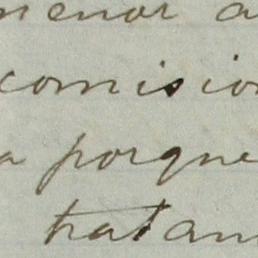 menor a
comisio
a porque
tratam